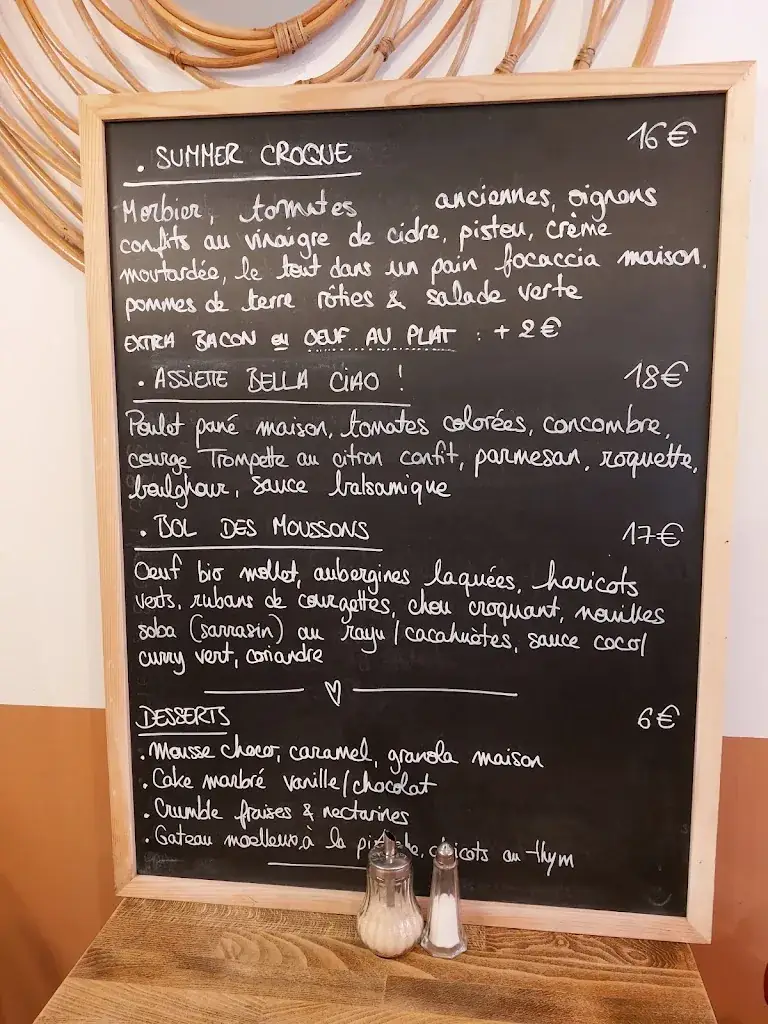 . SUMMER CROQUE 16€
Morbier, tomates anciennes, oignons
confits au vinaigre de cidre, pistou, crème
moutardée, le tout dans un pain focaccia maison.
pommes de terre rôties & salade verte
EXTRA BACON ou OEUF AU PLAT : + 2€
. ASSIETTE BELLA CIAO ! 18€
Poulet pané maison, tomates colorées, concombre,
courge Trompette au citron confit, parmesan, roquette,
boulghour, sauce balsamique
. BOL DES MOUSSONS 17€
Oeuf bio mollet, aubergines laquées, haricots
verts, rubans de courgettes, chou croquant, nouilles
soba (sarrasin) au rayu/cacahuètes, sauce coco/
curry vert, coriandre
DESSERTS 6€
. Mousse choco, caramel, granola maison
. Cake marbré vanille/chocolat
. Crumble fraises & nectarines
. Gateau moelleux à la au thym